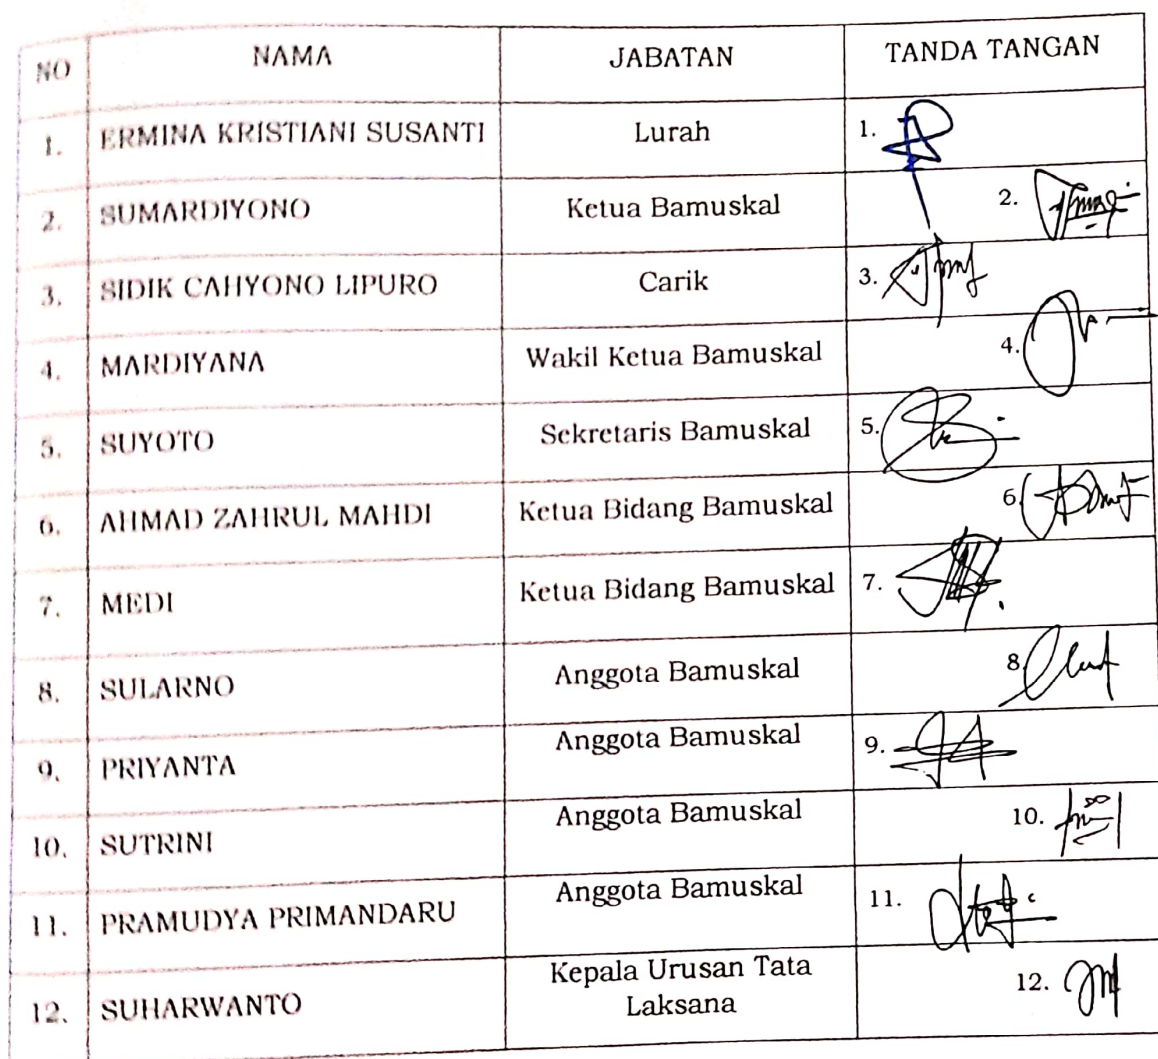 NO NAMA JABATAN TANDA TANGAN
1. ERMINA KRISTIANI SUSANTI Lurah 1.
2. SUMARDIYONO Ketua Bamuskal 2.
3. SIDIK CAHYONO LIPURO Carik 3.
4. MARDIYANA Wakil Ketua Bamuskal 4.
5. SUYOTO Sekretaris Bamuskal 5.
6. AHMAD ZAHRUL MAHDI Ketua Bidang Bamuskal 6.
7. MEDI Ketua Bidang Bamuskal 7.
8. SULARNO Anggota Bamuskal 8.
9. PRIYANTA Anggota Bamuskal 9.
10. SUTRINI Anggota Bamuskal 10.
11. PRAMUDYA PRIMANDARU Anggota Bamuskal 11.
12. SUHARWANTO Kepala Urusan Tata
Laksana 12.